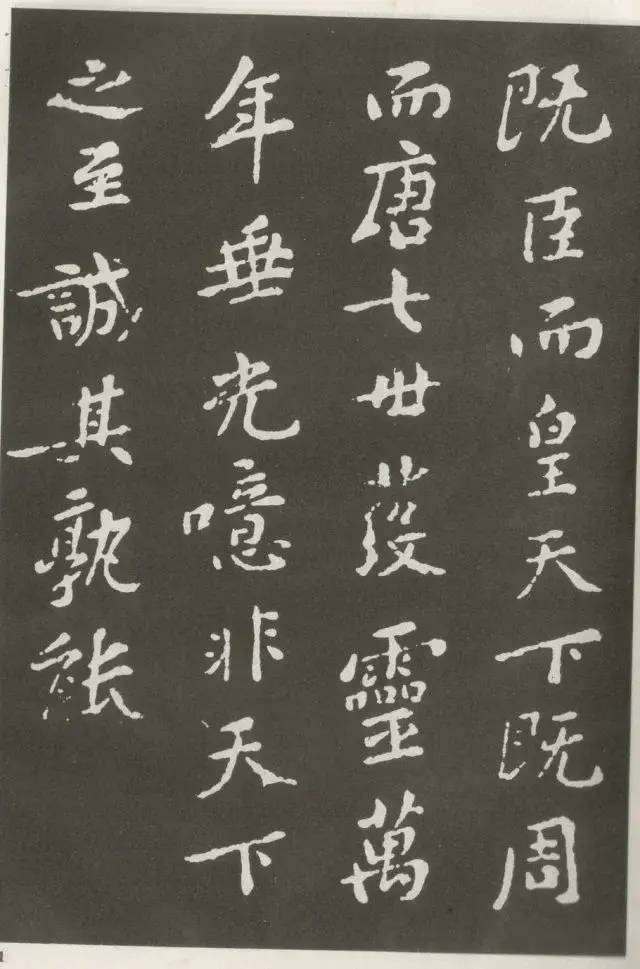 既臣而皇天下既周
而唐七世發靈萬
年垂光噫非天下
之至誠其孰能